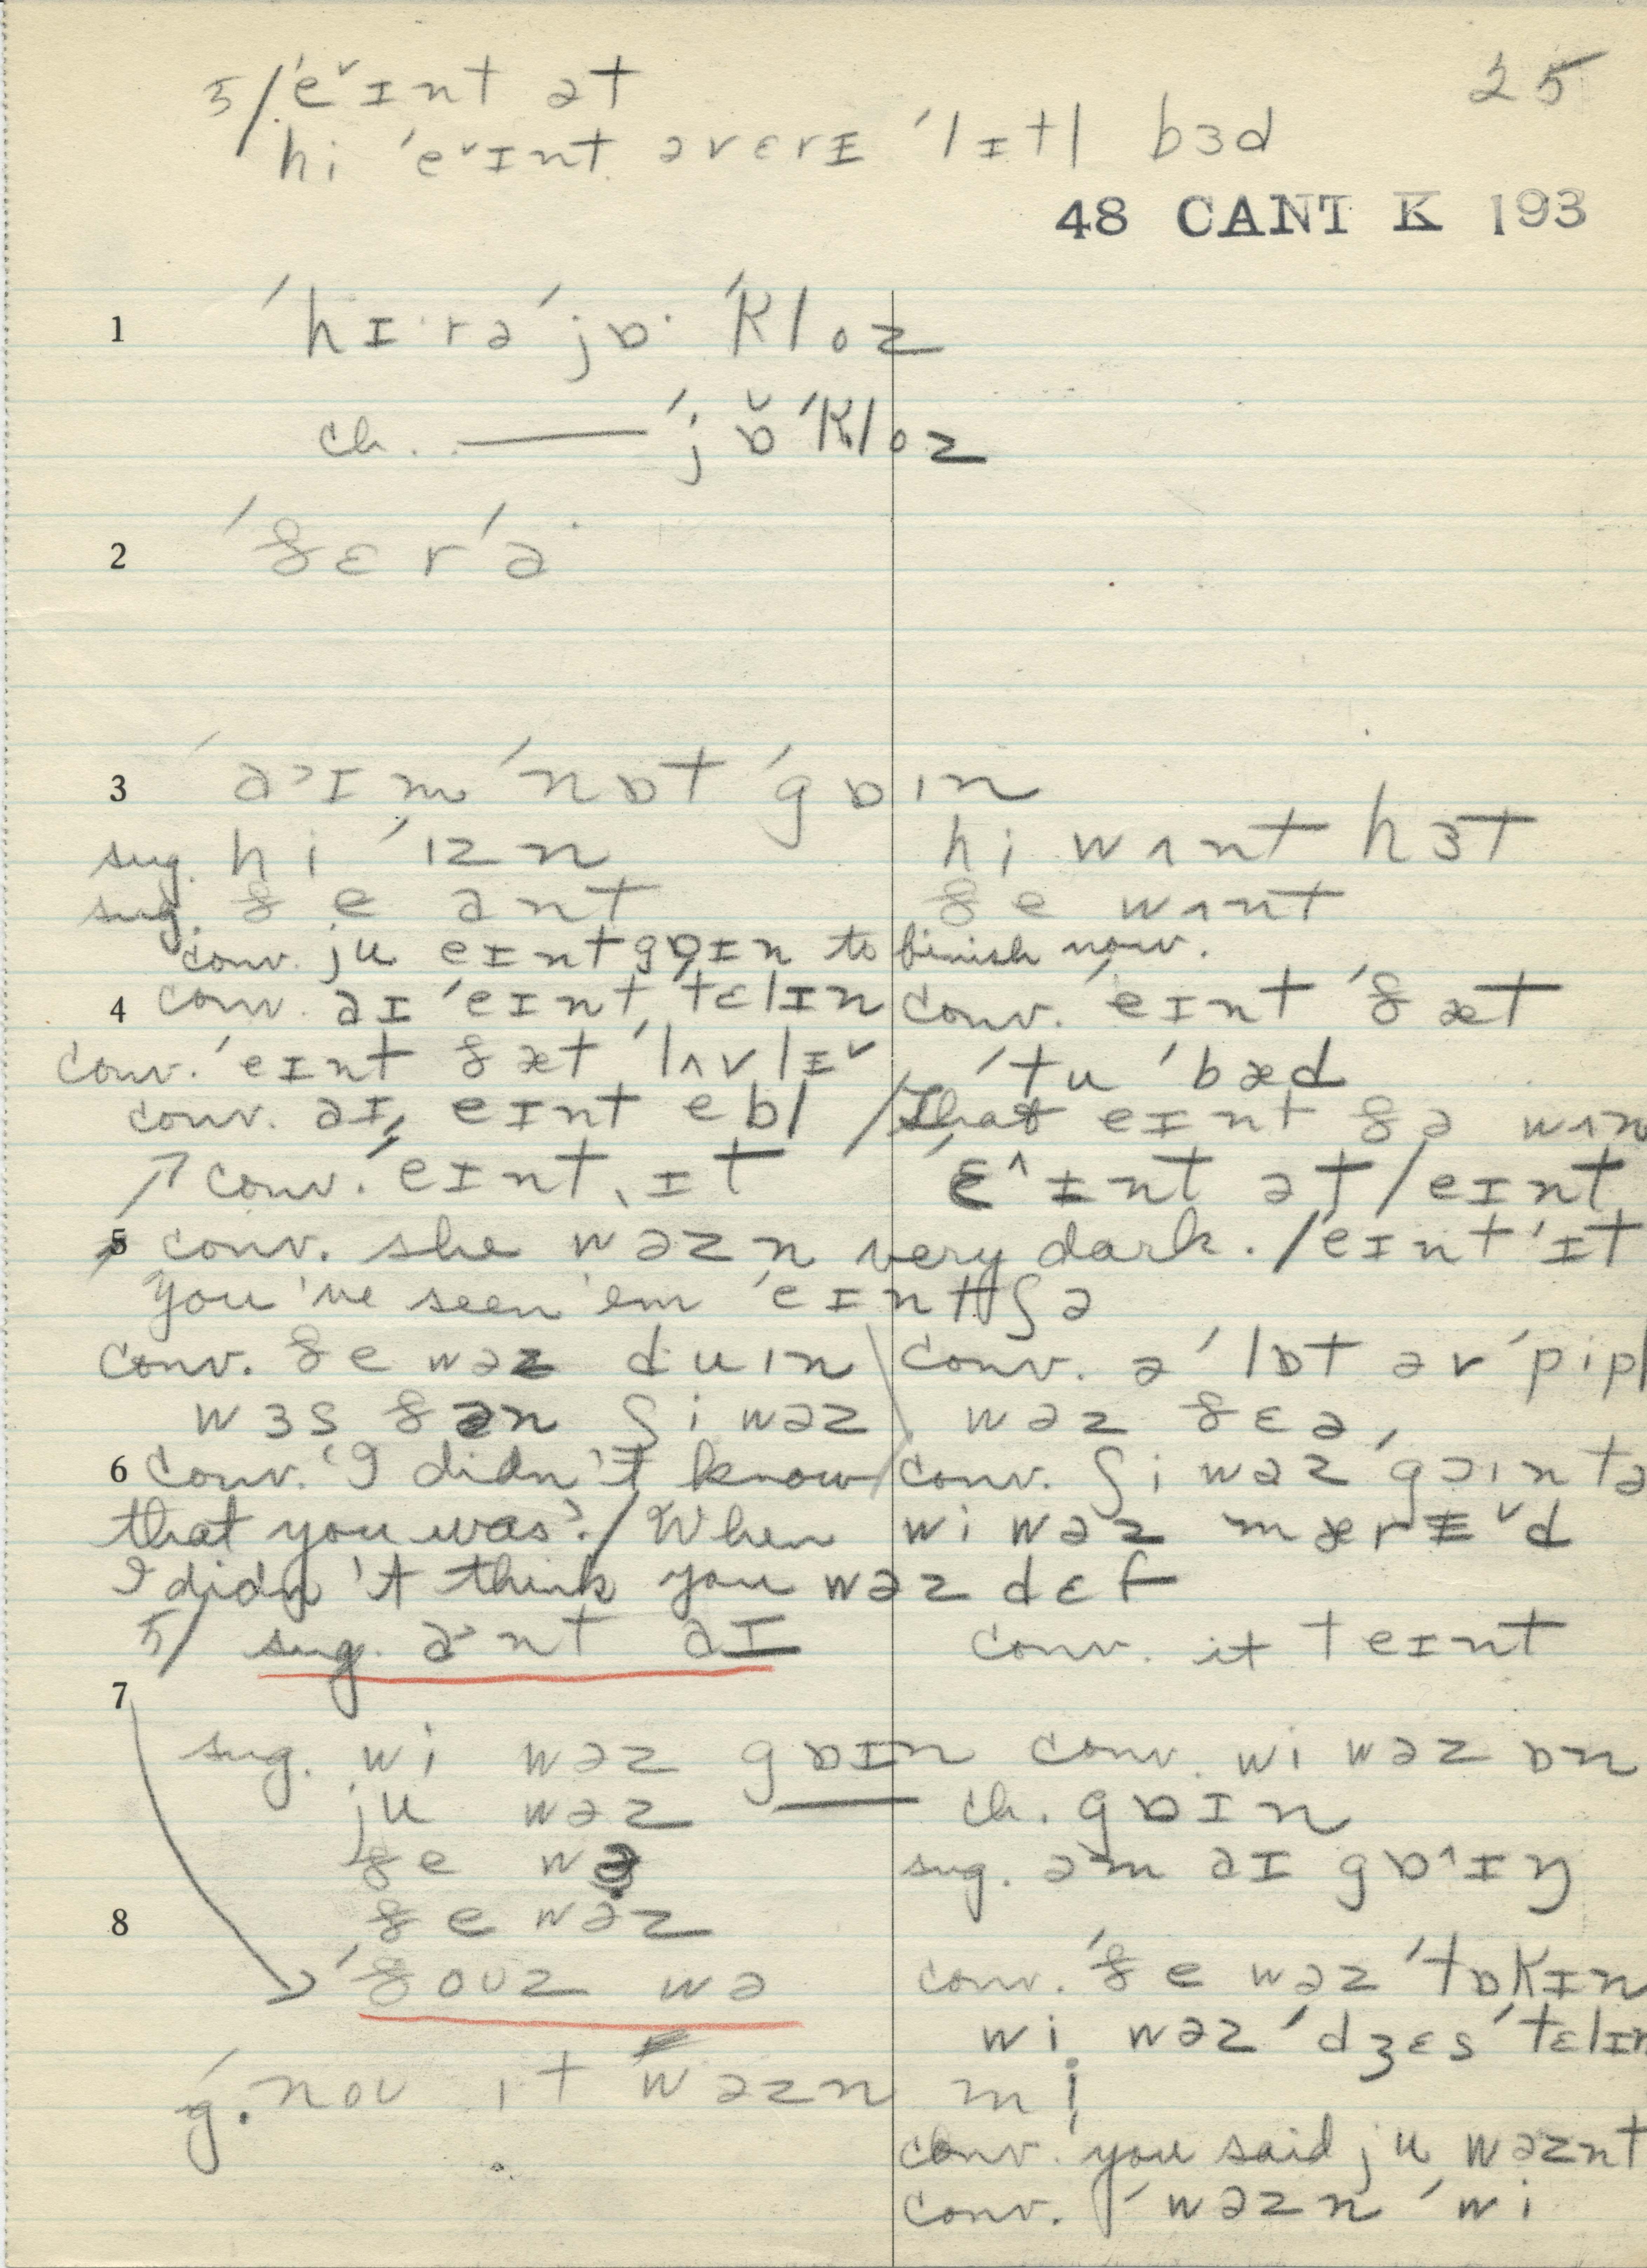 5/ ˈe˅ɪnt ət 25
hi ˈe˅ɪnt ə vɛrɪ ˈlɪtl bɜd
48 CANT K 193
1 ˈhɪ·rə ˈjɒ· ˈkloz
ch. — ˈjɒ̌ ˈkloz
2 ˈðɛrˈə·
3 ˈa˃ɪm ˈnɒt ˈgɒɪn
sug. hi ˈɪzn hi wʌnt hɜt
sug. ðe ant ðe wʌnt
conv. ju eɪnt gɒɪn to finish now.
4 conv. aɪ ˈeɪnt ˈtɛlɪn conv. ˈeɪnt ˈðæt
conv. ˈeɪnt ðæt ˈlʌvlɪ˅ ˈtu ˈbæd
conv. aɪ eɪnt ebl / That eɪnt ðə wʌn
↗ conv. ˈeɪnt ɪt ˈɛ^ɪnt ət / eɪnt
5 conv. she wəzn very dark. / ˈeɪnt ˈɪt
You've seen 'em ˈeɪntʃə
conv. ðe wəz duɪn conv. ə ˈlɒt əv ˈpipl
wɜs ðən ʃi wəz wəz ðɛə
6 conv. 'I didn't know conv. ʃi wəz ˈgɔɪn tə
that you was'. / When wi wəz mærɪ˅d
I didn't think you wəz dɛf
5/ sug. a˃nt aɪ conv. it teɪnt
7
sug. wi wəz gɒɪn conv. wi wəz ɒn
ju wəz ch. gɒɪn
ðe wə sug. əm aɪ gɒ^ɪŋ
8 ðe wəz
ˈðouz wə conv. ˈðe wəz ˈtɒkɪn
wi wəz ˈdʒɛs ˈtɛlɪn
g. nou ɪt wəzn mi
conv. you said ju wəznt
conv. ˈwəzn ˈwi